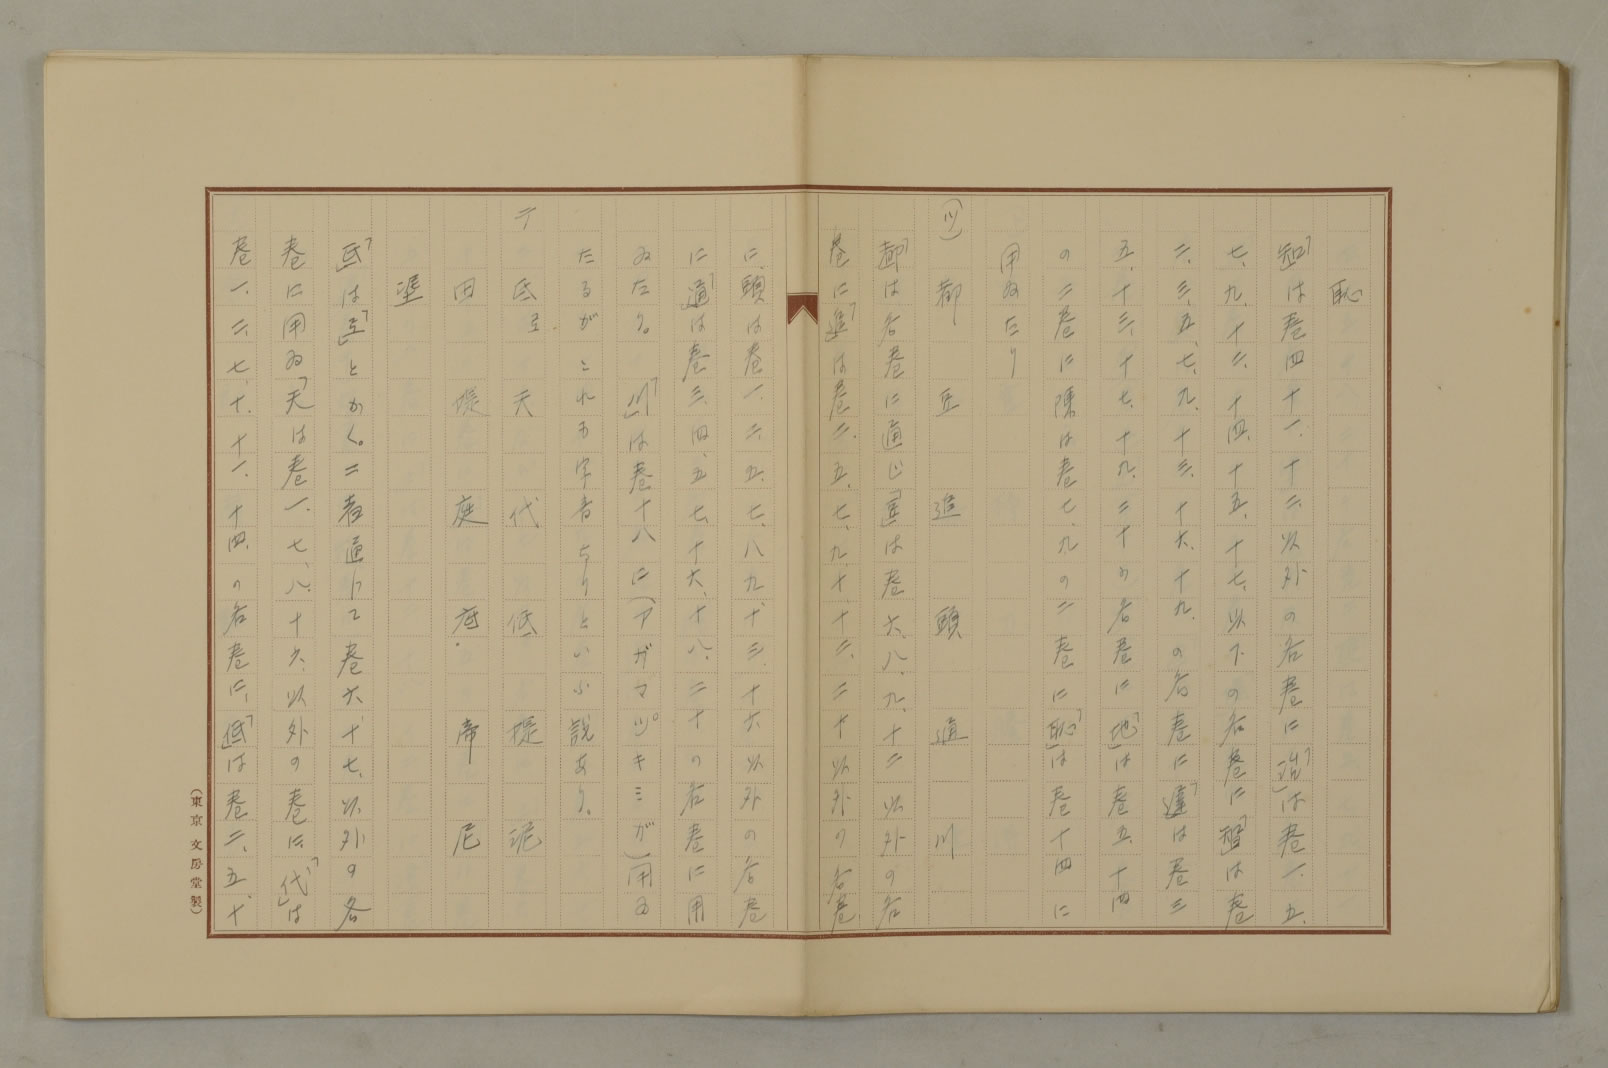 恥
「知」は巻四十一、十二、以外の各巻に「治」は巻一、五、
七、九、十二、十四、十五、十七、以下の各巻に「智」は巻
二、三、五、七、九、十三、十六、十九、の各巻に「遅」は巻三
五、十三、十七、十九、二十の各巻に「地」は巻五、十四
の二巻に陳は巻七、九の二巻に「恥」は巻十四に
用ゐたり
(ツ) 都 豆 追 頭 通 川
「都」は各巻に通じ「豆」は巻六、八、九、十二以外の各
巻に「追」は巻二、五、七、九、十、十三、二十以外の各巻
に、頭は巻一、二、五、七、八九、十三、十六以外の各巻
に「通」は巻三、四、五、七、十六、十八、二十の各巻に用
ゐたり。「川」は巻十八に(アガマツ。キミが)用ゐ
たるがこれも字音なりといふ説あり。
テ 氐 天 代 低 提 泥
田 堤 庭 底 帝 尼
埿
「氐」は「」とかく。二者通じて巻六、十七、以外の各
巻に用ゐ「天」は巻一、七、八、十六、以外の巻に、「代」は
巻一、二、七、十、十一、十四、の各巻に、「低」は巻二、五、十
(東京文房堂製)